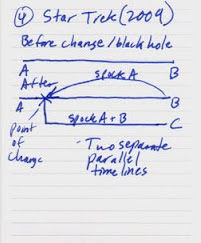 ④ Star Trek (2009)
Before change/black hole
A B
After Spock A
A B
Point of change
Spock A + B C
- Two separate parallel timelines